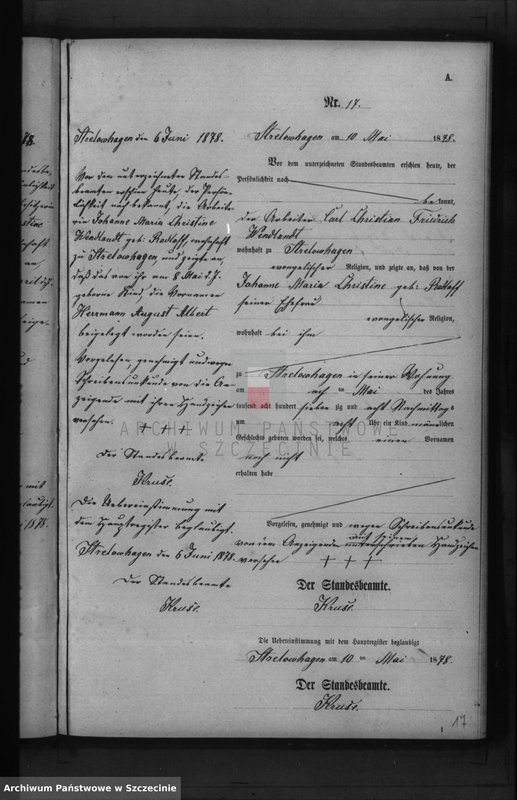 A.
Nr. 17.
Strelowhagen am 10 Mai 1878.
Vor dem unterzeichneten Standesbeamten erschien heute, der
Persönlichkeit nach
bekannt,
der Arbeiter Carl Christian Friedrich
Wendlandt
wohnhaft zu Strelowhagen
evangelischer Religion, und zeigte an, daß von der
Johanne Maria Christine geb: Radloff
seiner Ehefrau
evangelischer Religion,
wohnhaft bei ihm
zu Strelowhagen in seiner Wohnung
am acht ten Mai des Jahres
tausend acht hundert sieben zig und acht Nachmittags
um acht Uhr ein Kind männlichen
Geschlechts geboren worden sei, welches einen Vornamen
noch nicht
erhalten habe
Vorgelesen, genehmigt und wegen Schreibensunkunde
von dem Anzeigenden mit seinen Handzeichen
versehen + + +
Der Standesbeamte.
Kruss.
Die Uebereinstimmung mit dem Hauptregister beglaubigt
Strelowhagen am 10 ten Mai 1878.
Der Standesbeamte.
Kruss.
17
Strelowhagen den 6 Juni 1878.
Vor dem unterzeichneten Standes-
beamten erschien heute, der Persön-
lichkeit nach bekannt, die Arbeite-
rin Johanne Maria Christine
Wendlandt geb: Radloff, wohnhaft
zu Strelowhagen und zeigte an,
daß das von ihr am 8 Mai d. J.
geborne Kind die Vornamen
Herrmann August Albert
beigelegt worden seien.
Vorgelesen genehmigt und wegen
Schreibensunkunde von die An-
zeigende mit ihren Handzeichen
versehen. + + +
Der Standesbeamte.
Kruss.
Die Uebereinstimmung mit
dem Hauptregister beglaubigt.
Strelowhagen den 6 Juni 1878.
Der Standesbeamte
Kruss.
ARCHIWUM PAŃSTWOWE
W SZCZECINIE
Archiwum Państwowe w Szczecinie